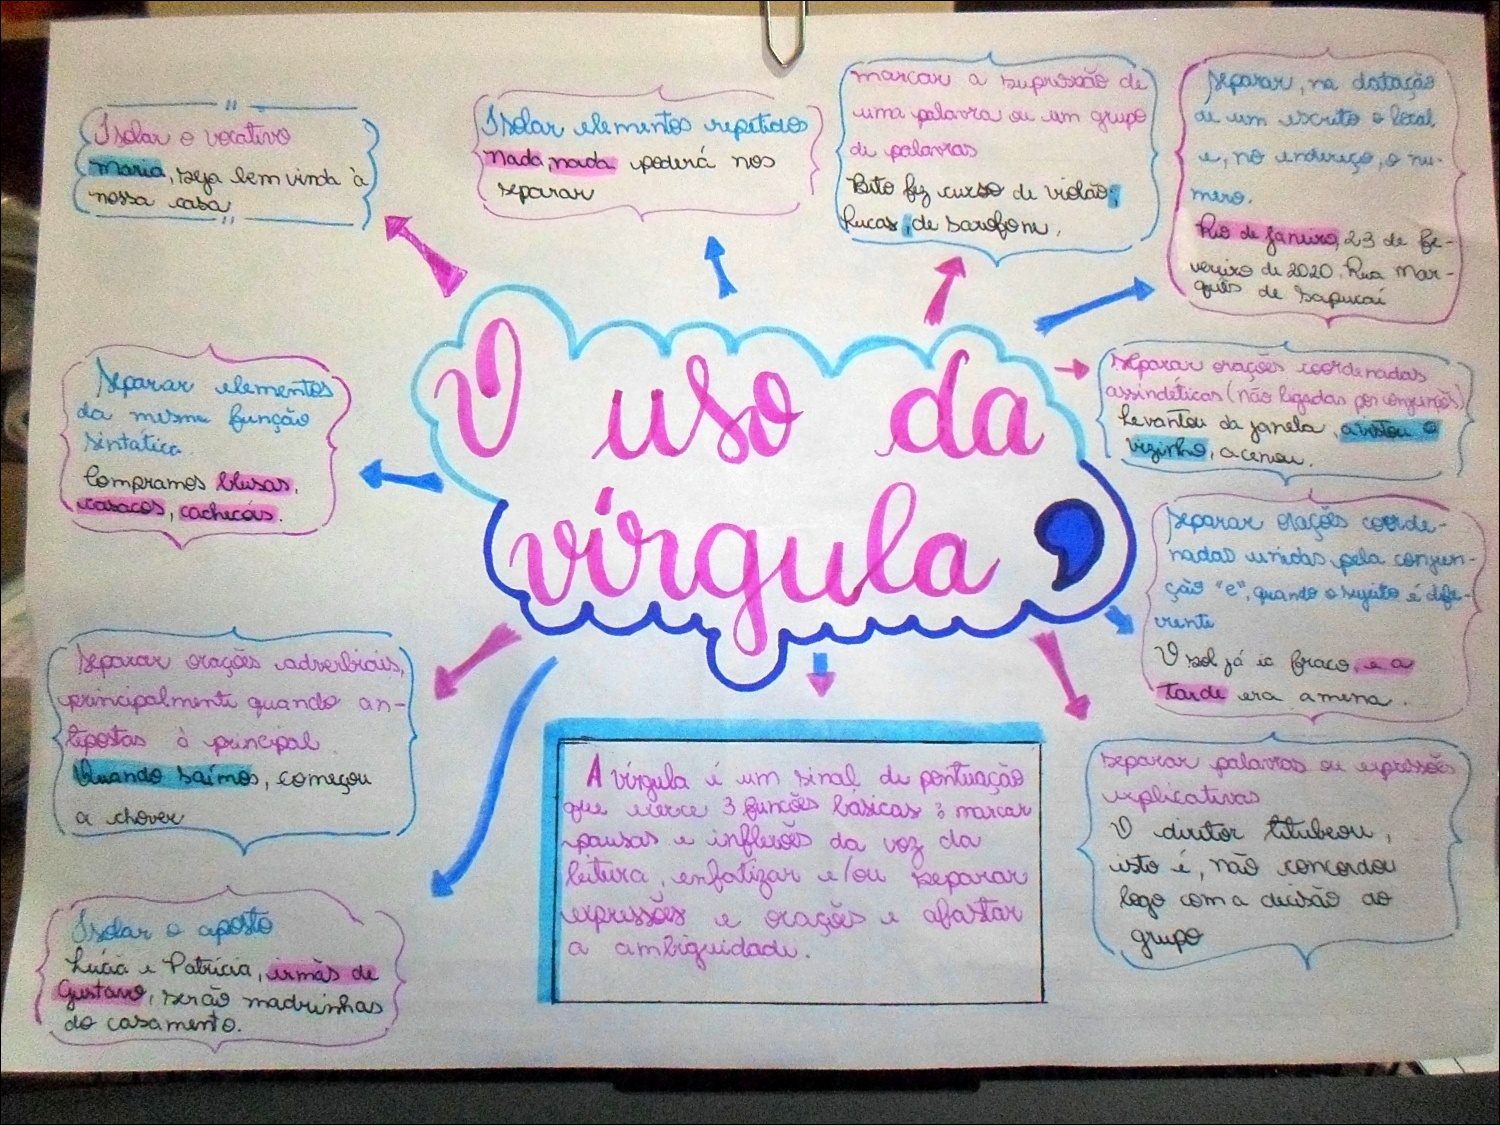 O uso da
vírgula
Isolar o vocativo
Maria, seja bem vinda à
nossa casa
Isolar elementos repetidos
Nada, nada poderá nos
separar
Marcar a supressão de
uma palavra ou um grupo
de palavras
Beto fez curso de violão;
Lucas, de saxofone.
Separar, na datação
de um escrito o local
e, no endereço, o nú-
mero.
Rio de Janeiro, 23 de fe-
vereiro de 2020. Rua Mar-
quês de Sapucaí
Separar orações coordenadas
assindéticas (não ligadas por conjunções)
Levantou da janela, avistou o
vizinho, acenou.
Separar orações coorde-
nadas unidas pela conjun-
ção "e", quando o sujeito é dife-
rente
O sol já ia fraco, e a
tarde era amena.
Separar palavras ou expressões
explicativas
O diretor titubeou,
isto é, não concordou
logo com a decisão do
grupo
Separar elementos
da mesma função
sintática.
Compramos blusas,
casacos, cachecóis.
Separar orações adverbiais,
principalmente quando an-
tepostas à principal.
Quando saímos, começou
a chover
Isolar o aposto
Lúcia e Patrícia, irmãs de
Gustavo, serão madrinhas
do casamento.
A vírgula é um sinal de pontuação
que exerce 3 funções básicas: marcar
pausas e inflexões da voz da
leitura, enfatizar e/ou separar
expressões e orações e afastar
a ambiguidade.